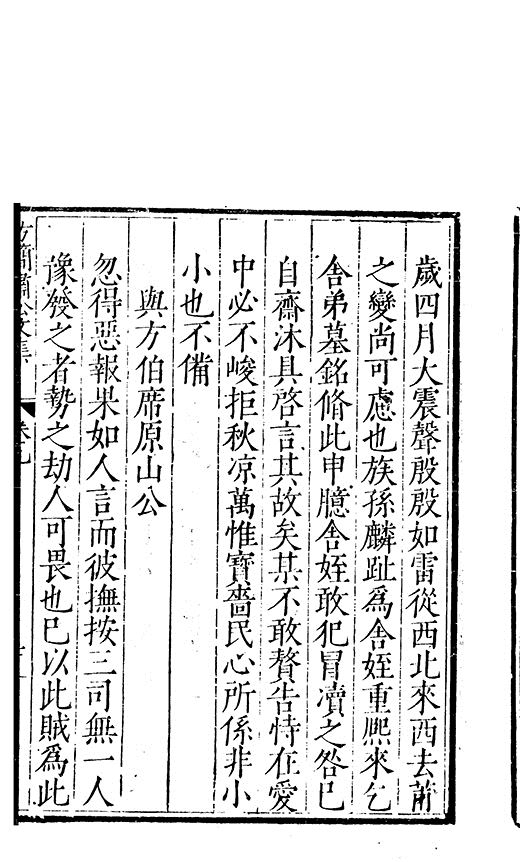 歲四月大震聲殷殷如雷從西北來西去莆
之變尚可慮也族孫麟趾爲舍姪重熈來乞
舍弟墓銘脩此申臆舍姪敢犯冒瀆之咎已
自齋沐具啓言其故矣某不敢贅告恃在愛
中必不峻拒秋凉萬惟寶嗇民心所係非小
小也不備
與方伯席原山公
忽得惡報果如人言而彼撫按三司無一人
豫發之者勢之劫人可畏也已以此賊爲此
簡肅公文集